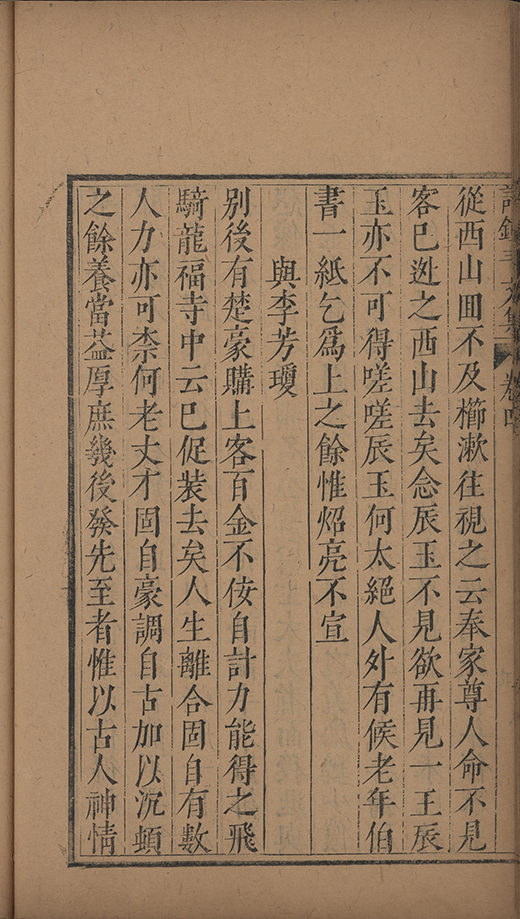 從西山囬不及櫛漱往視之云奉家尊人命不見
客已迯之西山去矣念辰玉不見欲再見一王辰
玉亦不可得嗟嗟辰玉何太絕人外有候老年伯
書一紙乞爲上之餘惟炤亮不宣
與李芳瓊
別後有楚豪購上客百金不佞自計力能得之飛
騎龍福寺中云已促裝去矣人生離合固自有數
人力亦可柰何老丈才固自豪調自古加以沉頓
之餘養當益厚庶幾後發先至者惟以古人神情